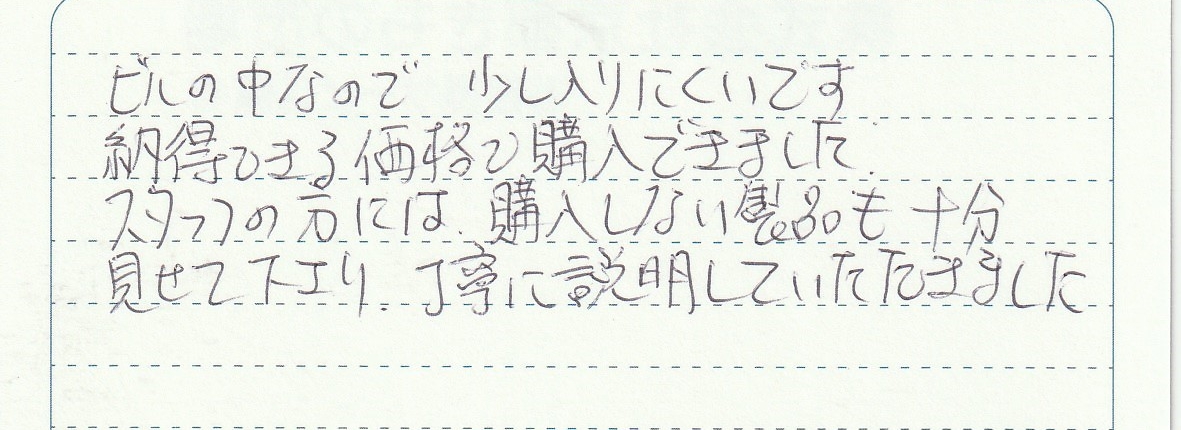 ビルの中なので 少し入りにくいです
納得できる価格で購入できました.
スタッフの方には、購入しない製品も十分
見せて下エり、丁寧に説明していただきました